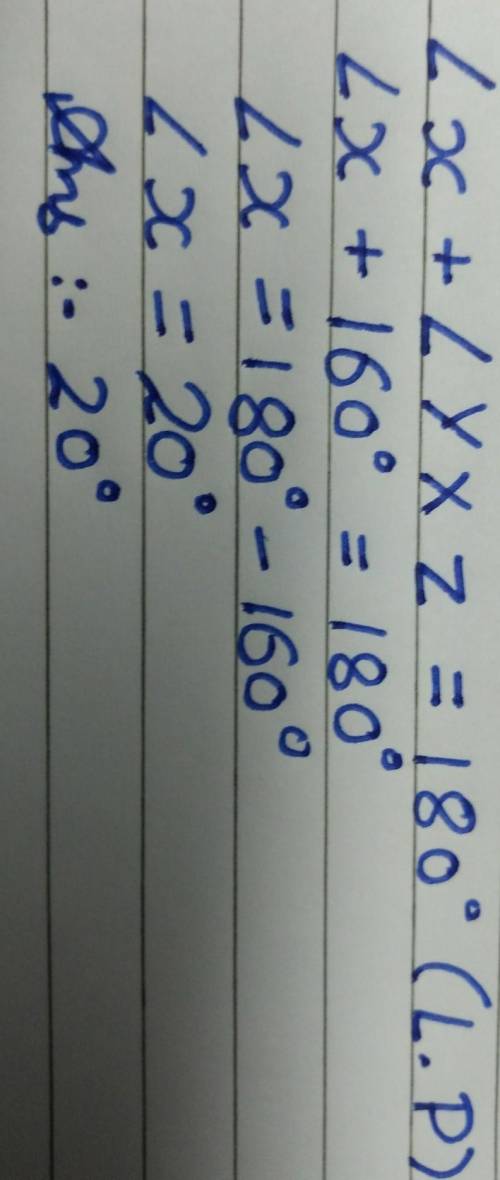 ∠x + ∠YXZ = 180° (L.P)
∠x + 160° = 180°
∠x = 180° - 160°
∠x = 20°
Ans :- 20°